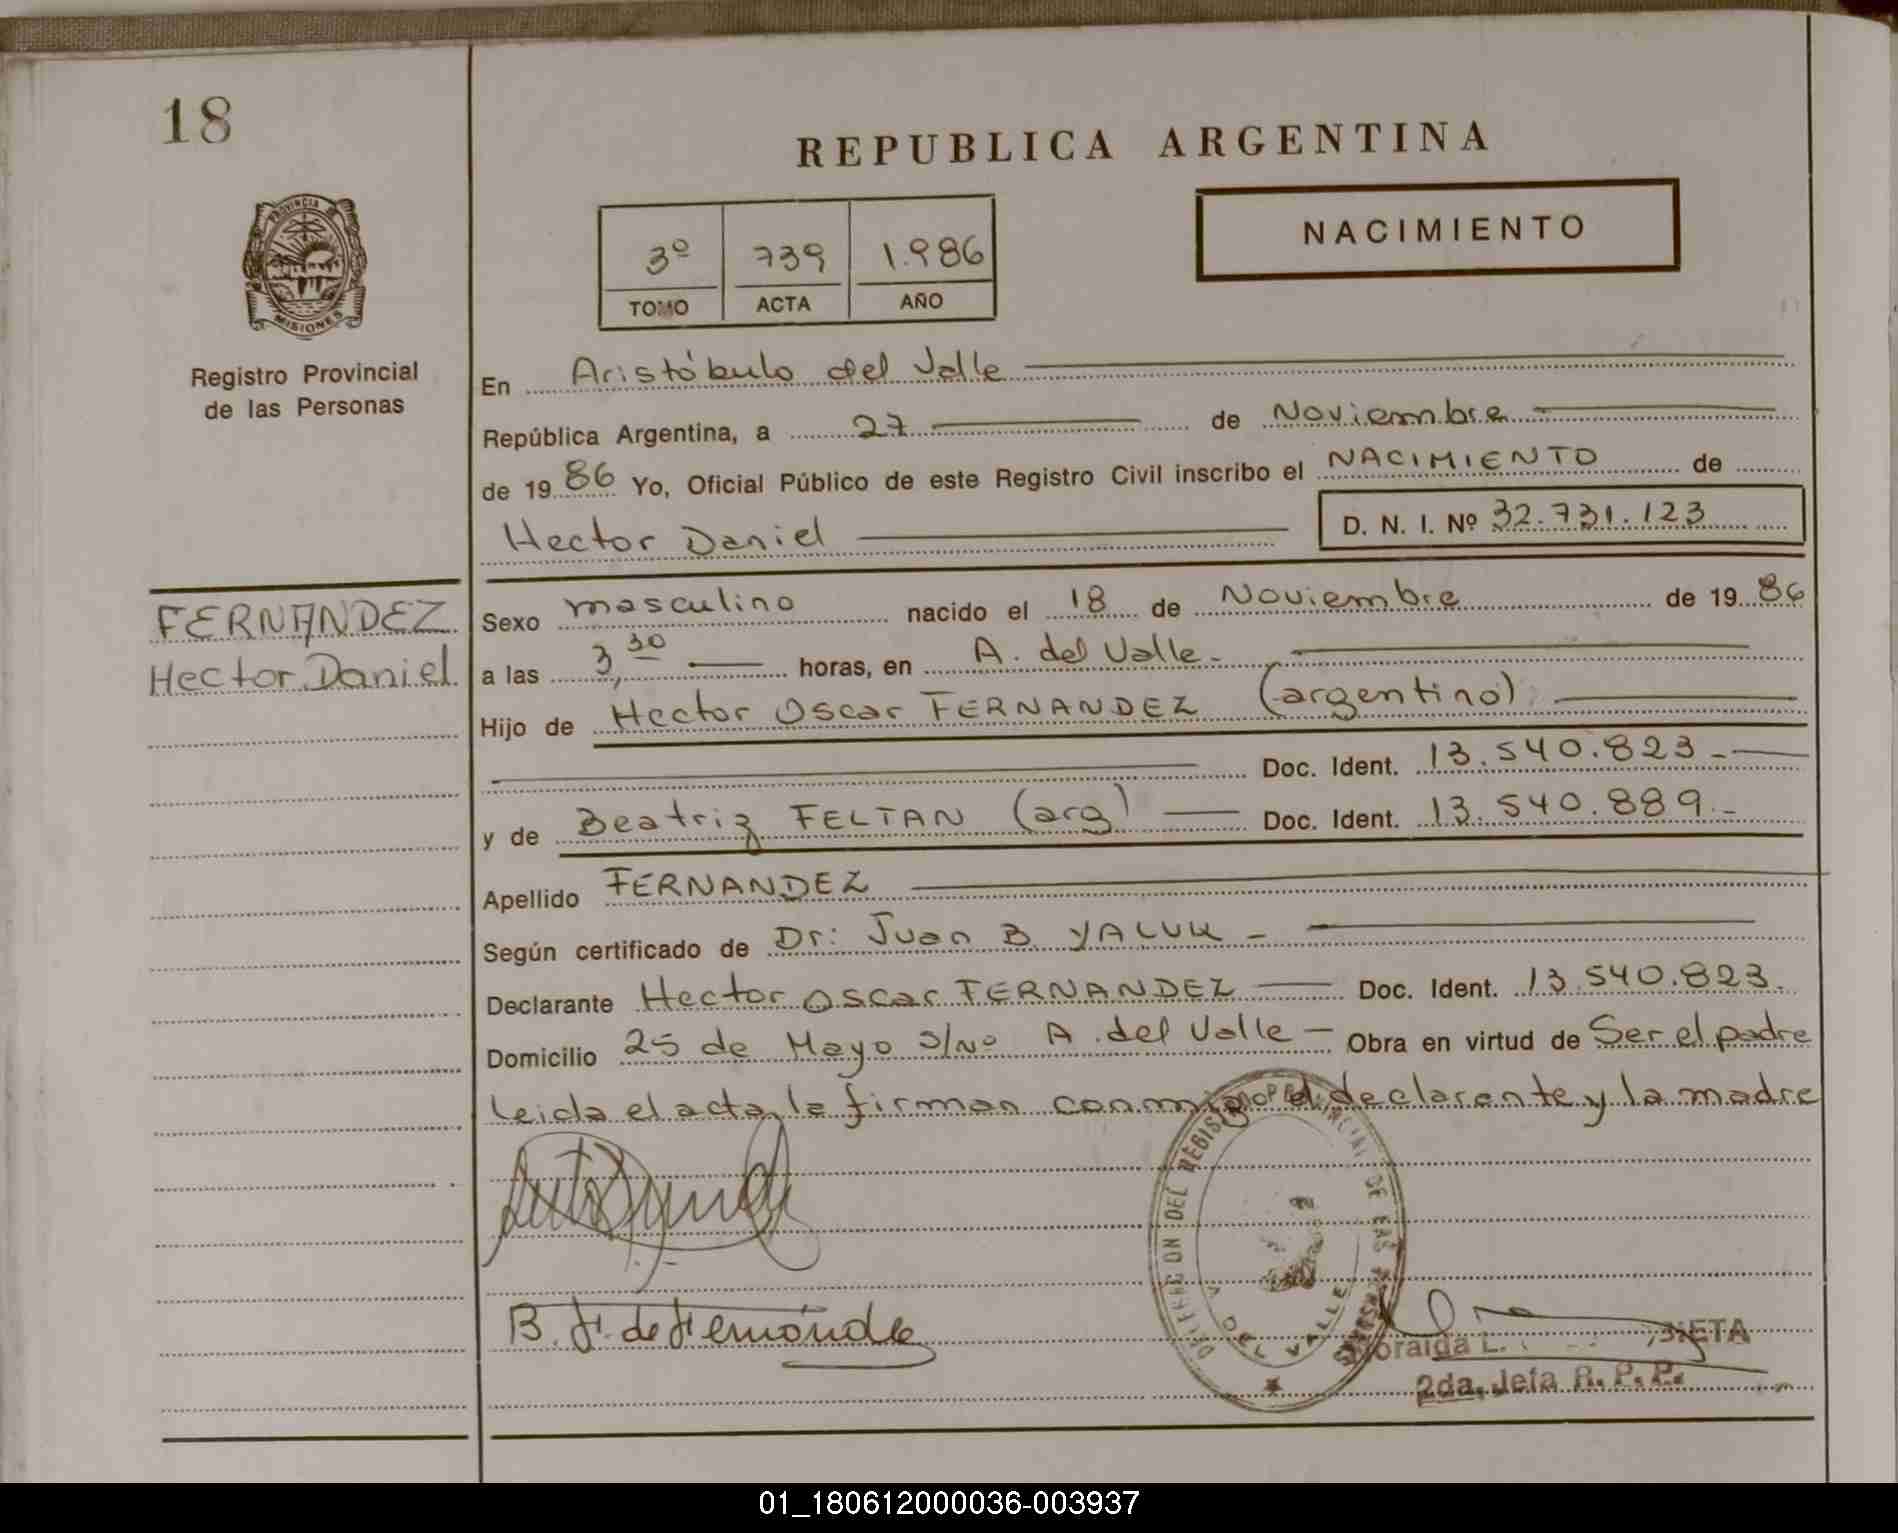 18
REPUBLICA ARGENTINA
NACIMIENTO
3º 739 1.986
TOMO ACTA AÑO
PROVINCIA DE
MISIONES
Registro Provincial
de las Personas
En Aristóbulo del Valle
República Argentina, a 27 de Noviembre
de 19 86 Yo, Oficial Público de este Registro Civil inscribo el NACIMIENTO de
Hector Daniel D. N. I. Nº 32.731.123
FERNANDEZ
Hector Daniel
Sexo masculino nacido el 18 de Noviembre de 19 86
a las 3,30 horas, en A. del Valle -
Hijo de Hector Oscar FERNANDEZ (argentino)
Doc. Ident. 13.540.823 -
y de Beatriz FELTAN (arg) Doc. Ident. 13.540.889 -
Apellido FERNANDEZ
Según certificado de Dr: Juan B YALUK -
Declarante Hector Oscar FERNANDEZ Doc. Ident. 13.540.823.
Domicilio 25 de Mayo S/Nº A. del Valle - Obra en virtud de Ser el padre
leida el acta, la firman conmigo el declarante y la madre
B. F. de Fernández
DELEGACION DEL REGISTRO PROVINCIAL DE LAS PERSONAS
DEL VALLE
L. IETA
2da. Jefa R. P. P.
01_180612000036-003937